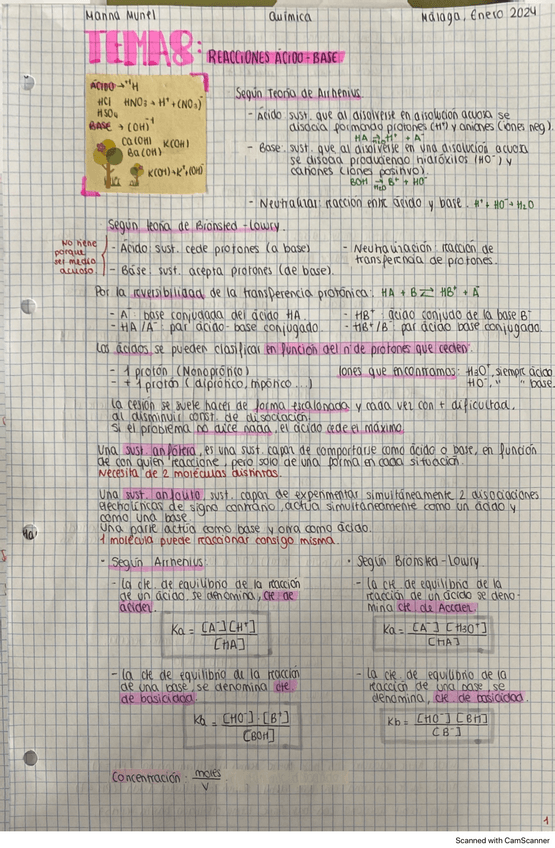 Marina Muriel Química Málaga, Enero 2024
TEMA 8: REACCIONES ÁCIDO-BASE
ÁCIDO → H
HCl HNO3 → H+ + (NO3)-
H2SO4
BASE → (OH)-1
Ca(OH) K(OH)
Ba(OH)
K(OH) → K+ + (OH)-
Según Teoría de Arrhenius
- Ácido: sust. que al disolverse en disolución acuosa se
disocia formando protones (H+) y aniones (iones neg).
HA → H2O H+ + A-
- Base: sust. que al disolverse en una disolución acuosa
se disocia produciendo hidróxilos (HO-) y
cationes (iones positivo).
BOH → H2O B+ + HO-
- Neutralizar: reacción entre ácido y base. H+ + HO- → H2O
Según teoría de Bronsted-Lowry.
No tiene
porque
ser medio
acuoso.
- Ácido: sust. cede protones (a base)
- Base: sust. acepta protones (de base).
- Neutralización: reacción de
transferencia de protones.
Por la reversibilidad de la transferencia protónica: HA + B ⇄ HB+ + A-
- A-: base conjugada del ácido HA.
- HA/A-: par ácido-base conjugado.
- HB+: ácido conjudo de la base B-
- HB+/B-: par ácido base conjugado.
Los ácidos, se pueden clasificar en función del nº de protones que ceden:
- 1 protón (Monoprónico)
- + 1 protón (diprótico, triprótico...)
Iones que encontramos: H3O+, siempre ácido
HO-, " " base.
La cesión se suele hacer de forma escalonada y cada vez con + dificultad,
al disminuir const. de disociación.
Si el problema no dice nada, el ácido cede el máximo.
Una sust. anfótera, es una sust. capaz de comportarse como ácido o base, en función
de con quien reaccione, pero solo de una forma en cada situación.
Necesita de 2 moléculas distintas.
Una sust. anfolito, sust. capaz de experimentar simultáneamente 2 disociaciones
electrolíticas de signo contrario, actua simultáneamente como un ácido y
como una base.
Una parte actúa como base y otra como ácido.
1 molécula puede reaccionar consigo misma.
· Según Arrhenius:
- La cte. de equilibrio de la reacción
de un ácido, se denomina, cte de
acidez.
Ka = [A-][H+] / [HA]
- La cte de equilibrio de la reacción
de una base, se denomina cte.
de basicidad.
Kb = [HO-]·[B+] / [BOH]
· Según Bronsted-Lowry
- La cte. de equilibrio de la
reacción de un ácido se deno-
mina cte de Acidez.
Ka = [A-][H3O+] / [HA]
- La cte. de equilibrio de la
reacción de una base, se
denomina, cte. de basicidad.
Kb = [HO-][BH] / [B-]
Concentración: moles / V
1
Scanned with CamScanner